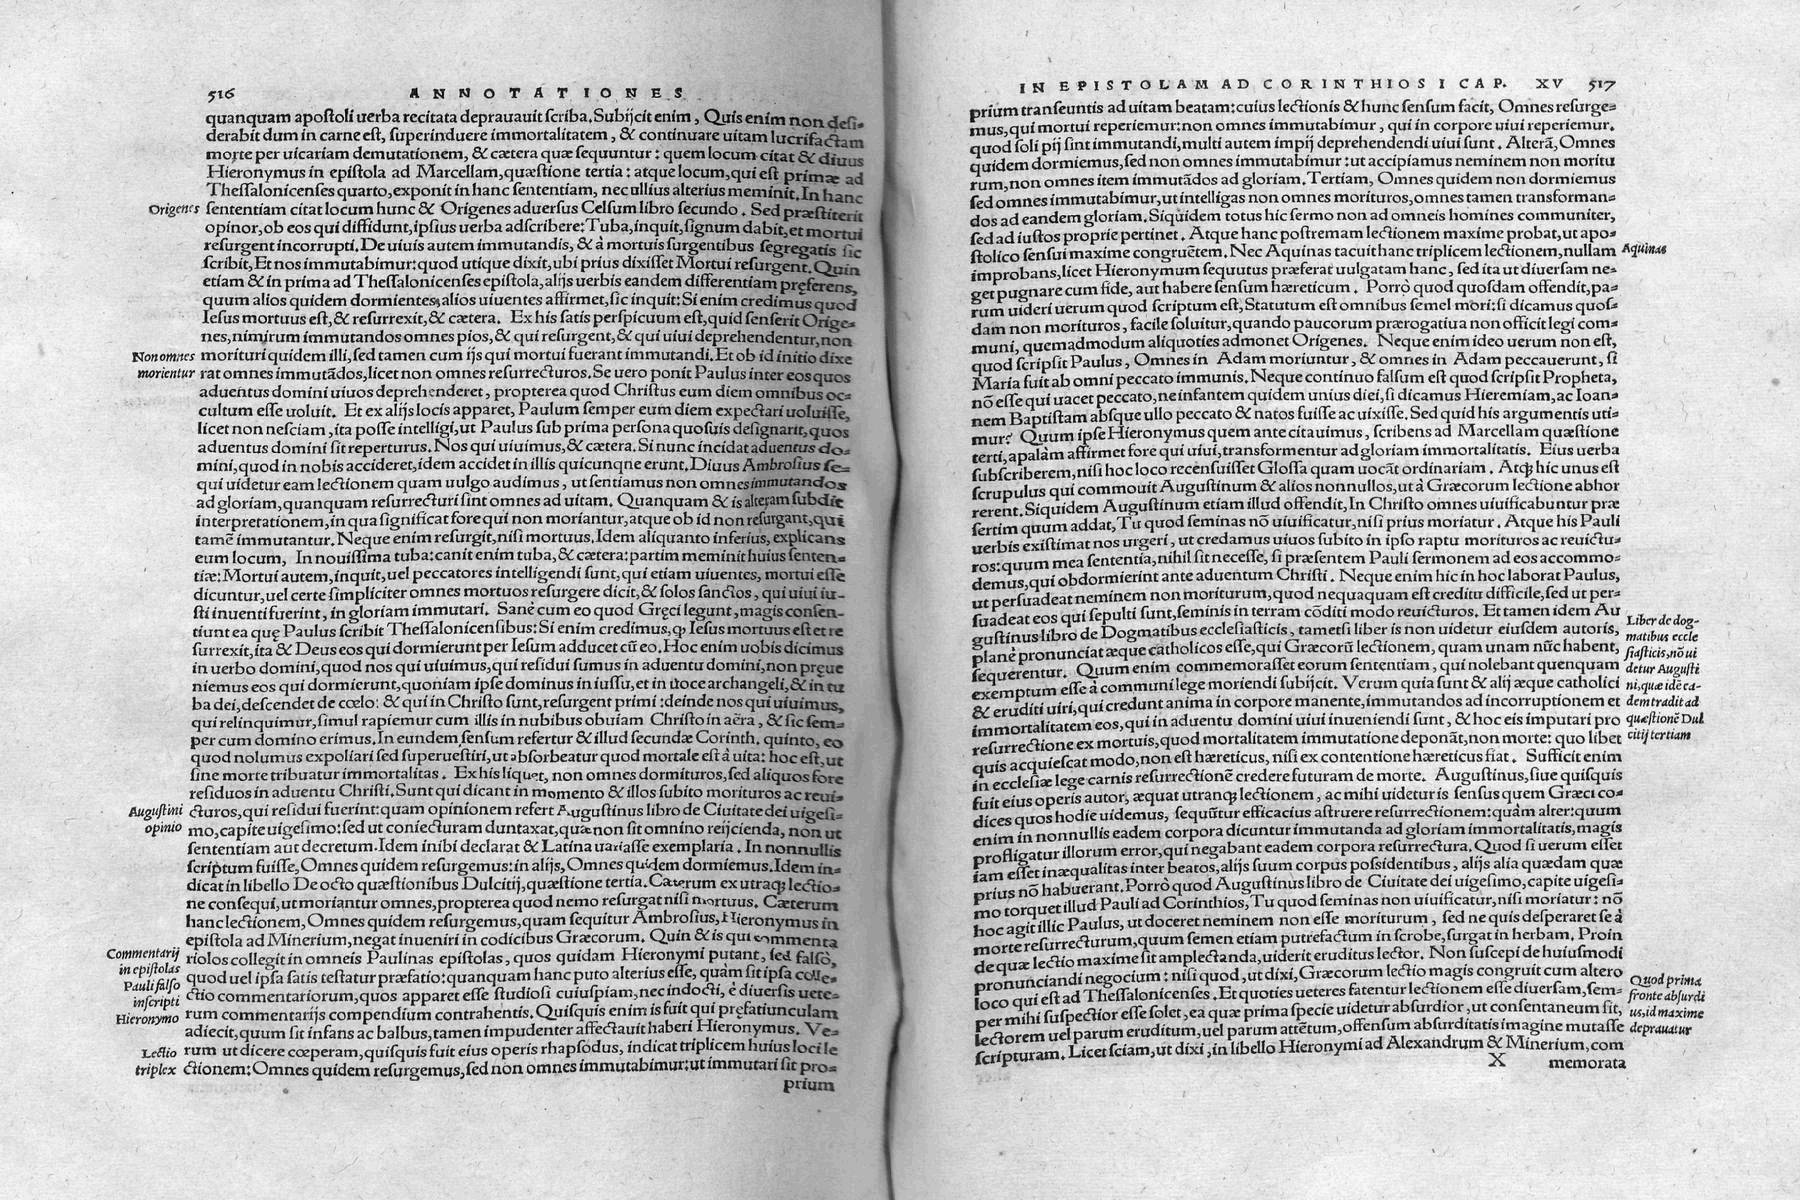 516 ANNOTATIONES
quanquam apostoli uerba recitata deprauauit scriba. Subijcit enim, Quis enim non desi-
derabit dum in carne est, superinduere immortalitatem, & continuare uitam lucrifactam
morte per uicariam demutationem, & cætera quæ sequuntur: quem locum citat & diuus
Hieronymus in epistola ad Marcellam, quæstione tertia: atque locum, qui est primæ ad
Thessalonicenses quarto, exponit in hanc sententiam, nec ullius alterius meminit. In hanc
Origenes
sententiam citat locum hunc & Origenes aduersus Celsum libro secundo. Sed præstiterit
opinor, ob eos qui diffidunt, ipsius uerba adscribere: Tuba, inquit, signum dabit, et mortui
resurgent incorrupti. De uiuis autem immutandis, & à mortuis surgentibus segregatis sic
scribit, Et nos immutabimur: quod utique dixit, ubi prius dixisset Mortui resurgent. Quin
etiam & in prima ad Thessalonicenses epistola, alijs uerbis eandem differentiam pręferens,
quum alios quidem dormientes, alios uiuentes affirmet, sic inquit: Si enim credimus quod
Iesus mortuus est, & resurrexit, & cætera. Ex his satis perspicuum est, quid senserit Orige-
nes, nimirum immutandos omnes pios, & qui resurgent, & qui uiui deprehendentur, non
Non omnes
morientur
morituri quidem illi, sed tamen cum ijs qui mortui fuerant immutandi. Et ob id initio dixe
rat omnes immutãdos, licet non omnes resurrecturos. Se uero ponit Paulus inter eos quos
aduentus domini uiuos deprehenderet, propterea quod Christus eum diem omnibus oc-
cultum esse uoluit. Et ex alijs locis apparet, Paulum semper eum diem expectari uoluisse,
licet non nesciam, ita posse intelligi, ut Paulus sub prima persona quosuis designarit, quos
aduentus domini sit reperturus. Nos qui uiuimus, & cætera. Si nunc incidat aduentus do-
mini, quod in nobis accideret, idem accidet in illis quicunque erunt. Diuus Ambrosius se-
qui uidetur eam lectionem quam uulgo audimus, ut sentiamus non omnes immutandos
ad gloriam, quanquam resurrecturi sint omnes ad uitam. Quanquam & is alteram subdit
interpretationem, in qua significat fore qui non moriantur, atque ob id non resurgant, qui
tamẽ immutantur. Neque enim resurgit, nisi mortuus. Idem aliquanto inferius, explicans
eum locum, In nouissima tuba: canit enim tuba, & cætera: partim meminit huius senten-
tiæ: Mortui autem, inquit, uel peccatores intelligendi sunt, qui etiam uiuentes, mortui esse
dicuntur, uel certe simpliciter omnes mortuos resurgere dicit, & solos sanctos, qui uiui iu-
sti inuenti fuerint, in gloriam immutari. Sanè cum eo quod Gręci legunt, magis consen-
tiunt ea quę Paulus scribit Thessalonicensibus: Si enim credimus, ꝙ Iesus mortuus est et re
surrexit, ita & Deus eos qui dormierunt per Iesum adducet cũ eo. Hoc enim uobis dicimus
in uerbo domini, quod nos qui uiuimus, qui residui sumus in aduentu domini, non pręue
niemus eos qui dormierunt, quoniam ipse dominus in iussu, et in uoce archangeli, & in tu
ba dei, descendet de cœlo: & qui in Christo sunt, resurgent primi: deinde nos qui uiuimus,
qui relinquimur, simul rapiemur cum illis in nubibus obuiam Christo in aëra, & sic sem-
per cum domino erimus. In eundem sensum refertur & illud secundæ Corinth. quinto, eo
quod nolumus expoliari sed superuestiri, ut absorbeatur quod mortale est à uita: hoc est, ut
sine morte tribuatur immortalitas. Ex his liquet, non omnes dormituros, sed aliquos fore
residuos in aduentu Christi. Sunt qui dicant in momento & illos subito morituros ac reui-
Augustini
opinio
cturos, qui residui fuerint: quam opinionem refert Augustinus libro de Ciuitate dei uigesi-
mo, capite uigesimo: sed ut coniecturam duntaxat, quæ non sit omnino reijcienda, non ut
sententiam aut decretum. Idem inibi declarat & Latina uariasse exemplaria. In nonnullis
scriptum fuisse, Omnes quidem resurgemus: in alijs, Omnes quidem dormiemus. Idem in-
dicat in libello De octo quæstionibus Dulcitij, quæstione tertia. Cæterum ex utraqꝫ lectio-
ne consequi, ut moriantur omnes, propterea quod nemo resurgat nisi mortuus. Cæterum
hanc lectionem, Omnes quidem resurgemus, quam sequitur Ambrosius, Hieronymus in
epistola ad Minerium, negat inueniri in codicibus Græcorum. Quin & is qui commenta
Commentarij
in epistolas
Pauli falso
inscripti
Hieronymo
riolos collegit in omneis Paulinas epistolas, quos quidam Hieronymi putant, sed falsò,
quod uel ipsa satis testatur præfatio: quanquam hanc puto alterius esse, quàm sit ipsa colle-
ctio commentariorum, quos apparet esse studiosi cuiuspiam, nec indocti, è diuersis uete-
rum commentarijs compendium contrahentis. Quisquis enim is fuit qui pręfatiunculam
adiecit, quum sit infans ac balbus, tamen impudenter affectauit haberi Hieronymus. Ve-
Lectio
triplex
rum ut dicere cœperam, quisquis fuit eius operis rhapsodus, indicat triplicem huius loci le
ctionem: Omnes quidem resurgemus, sed non omnes immutabimur: ut immutari sit pro-
prium
IN EPISTOLAM AD CORINTHIOS I CAP. XV 517
prium transeuntis ad uitam beatam: cuius lectionis & hunc sensum facit, Omnes resurge-
mus, qui mortui reperiemur: non omnes immutabimur, qui in corpore uiui reperiemur.
quod soli pij sint immutandi, multi autem impij deprehendendi uiui sunt. Alterã, Omnes
quidem dormiemus, sed non omnes immutabimur: ut accipiamus neminem non moritu
rum, non omnes item immutãdos ad gloriam. Tertiam, Omnes quidem non dormiemus
sed omnes immutabimur, ut intelligas non omnes morituros, omnes tamen transforman-
dos ad eandem gloriam. Siquidem totus hic sermo non ad omneis homines communiter,
sed ad iustos proprie pertinet. Atque hanc postremam lectionem maxime probat, ut apo-
stolico sensui maxime congruẽtem. Nec Aquinas tacuit hanc triplicem lectionem, nullam
Aquinas
improbans, licet Hieronymum sequutus præferat uulgatam hanc, sed ita ut diuersam ne-
get pugnare cum fide, aut habere sensum hæreticum. Porrò quod quosdam offendit, pa-
rum uideri uerum quod scriptum est, Statutum est omnibus semel mori: si dicamus quos-
dam non morituros, facile soluitur, quando paucorum prærogatiua non officit legi com-
muni, quemadmodum aliquoties admonet Origenes. Neque enim ideo uerum non est,
quod scripsit Paulus, Omnes in Adam moriuntur, & omnes in Adam peccauerunt, si
Maria fuit ab omni peccato immunis. Neque continuo falsum est quod scripsit Propheta,
nõ esse qui uacet peccato, ne infantem quidem unius diei, si dicamus Hieremiam, ac Ioan-
nem Baptistam absque ullo peccato & natos fuisse ac uixisse. Sed quid his argumentis uti-
mur? Quum ipse Hieronymus quem ante citauimus, scribens ad Marcellam quæstione
terti, apalàm affirmet fore qui uiui, transformentur ad gloriam immortalitatis. Eius uerba
subscriberem, nisi hoc loco recensuisset Glossa quam uocãt ordinariam. Atqꝫ hic unus est
scrupulus qui commouit Augustinum & alios nonnullos, ut à Græcorum lectione abhor
rerent. Siquidem Augustinum etiam illud offendit, In Christo omnes uiuificabuntur præ
sertim quum addat, Tu quod seminas nõ uiuificatur, nisi prius moriatur. Atque his Pauli
uerbis existimat nos urgeri, ut credamus uiuos subito in ipso raptu morituros ac reuictu-
ros: quum mea sententia, nihil sit necesse, si præsentem Pauli sermonem ad eos accommo-
demus, qui obdormierint ante aduentum Christi. Neque enim hic in hoc laborat Paulus,
ut persuadeat neminem non moriturum, quod nequaquam est creditu difficile, sed ut per-
suadeat eos qui sepulti sunt, seminis in terram cõditi modo reuicturos. Et tamen idem Au
gustinus libro de Dogmatibus ecclesiasticis, tametsi liber is non uidetur eiusdem autoris,
Liber de dog-
matibus eccle
siasticis, nõ ui
detur Augusti
ni, quæ idẽ ca-
dem tradit ad
quæstionẽ Dul
citij tertiam
planè pronunciat æque catholicos esse, qui Græcorũ lectionem, quam unam nũc habent,
sequerentur. Quum enim commemorasset eorum sententiam, qui nolebant quenquam
exemptum esse à communi lege moriendi subijcit. Verum quia sunt & alij æque catholici
& eruditi uiri, qui credunt anima in corpore manente, immutandos ad incorruptionem et
immortalitatem eos, qui in aduentu domini uiui inueniendi sunt, & hoc eis imputari pro
resurrectione ex mortuis, quod mortalitatem immutatione deponãt, non morte: quo libet
quis acquiescat modo, non est hæreticus, nisi ex contentione hæreticus fiat. Sufficit enim
in ecclesiæ lege carnis resurrectionẽ credere futuram de morte. Augustinus, siue quisquis
fuit eius operis autor, æquat utranqꝫ lectionem, ac mihi uidetur is sensus quem Græci co-
dices quos hodie uidemus, sequũtur efficacius astruere resurrectionem: quàm alter: quum
enim in nonnullis eadem corpora dicuntur immutanda ad gloriam immortalitatis, magis
profligatur illorum error, qui negabant eadem corpora resurrectura. Quod si uerum esset
iam esset inæqualitas inter beatos, alijs suum corpus possidentibus, alijs alia quædam quæ
prius nõ habuerant. Porrò quod Augustinus libro de Ciuitate dei uigesimo, capite uigesi-
mo torquet illud Pauli ad Corinthios, Tu quod seminas non uiuificatur, nisi moriatur: nõ
hoc agit illic Paulus, ut doceret neminem non esse moriturum, sed ne quis desperaret se à
morte resurrecturum, quum semen etiam putrefactum in scrobe, surgat in herbam. Proin
de quæ lectio maxime sit amplectanda, uiderit eruditus lector. Non suscepi de huiusmodi
pronunciandi negocium: nisi quod, ut dixi, Græcorum lectio magis congruit cum altero
loco qui est ad Thessalonicenses. Et quoties ueteres fatentur lectionem esse diuersam, sem-
Quod prima
fronte absurdi
us, id maxime
deprauatur
per mihi suspectior esse solet, ea quæ prima specie uidetur absurdior, ut consentaneum sit,
lectorem uel parum eruditum, uel parum attẽtum, offensum absurditatis imagine mutasse
scripturam. Licet sciam, ut dixi, in libello Hieronymi ad Alexandrum & Minerium, com
X memorata